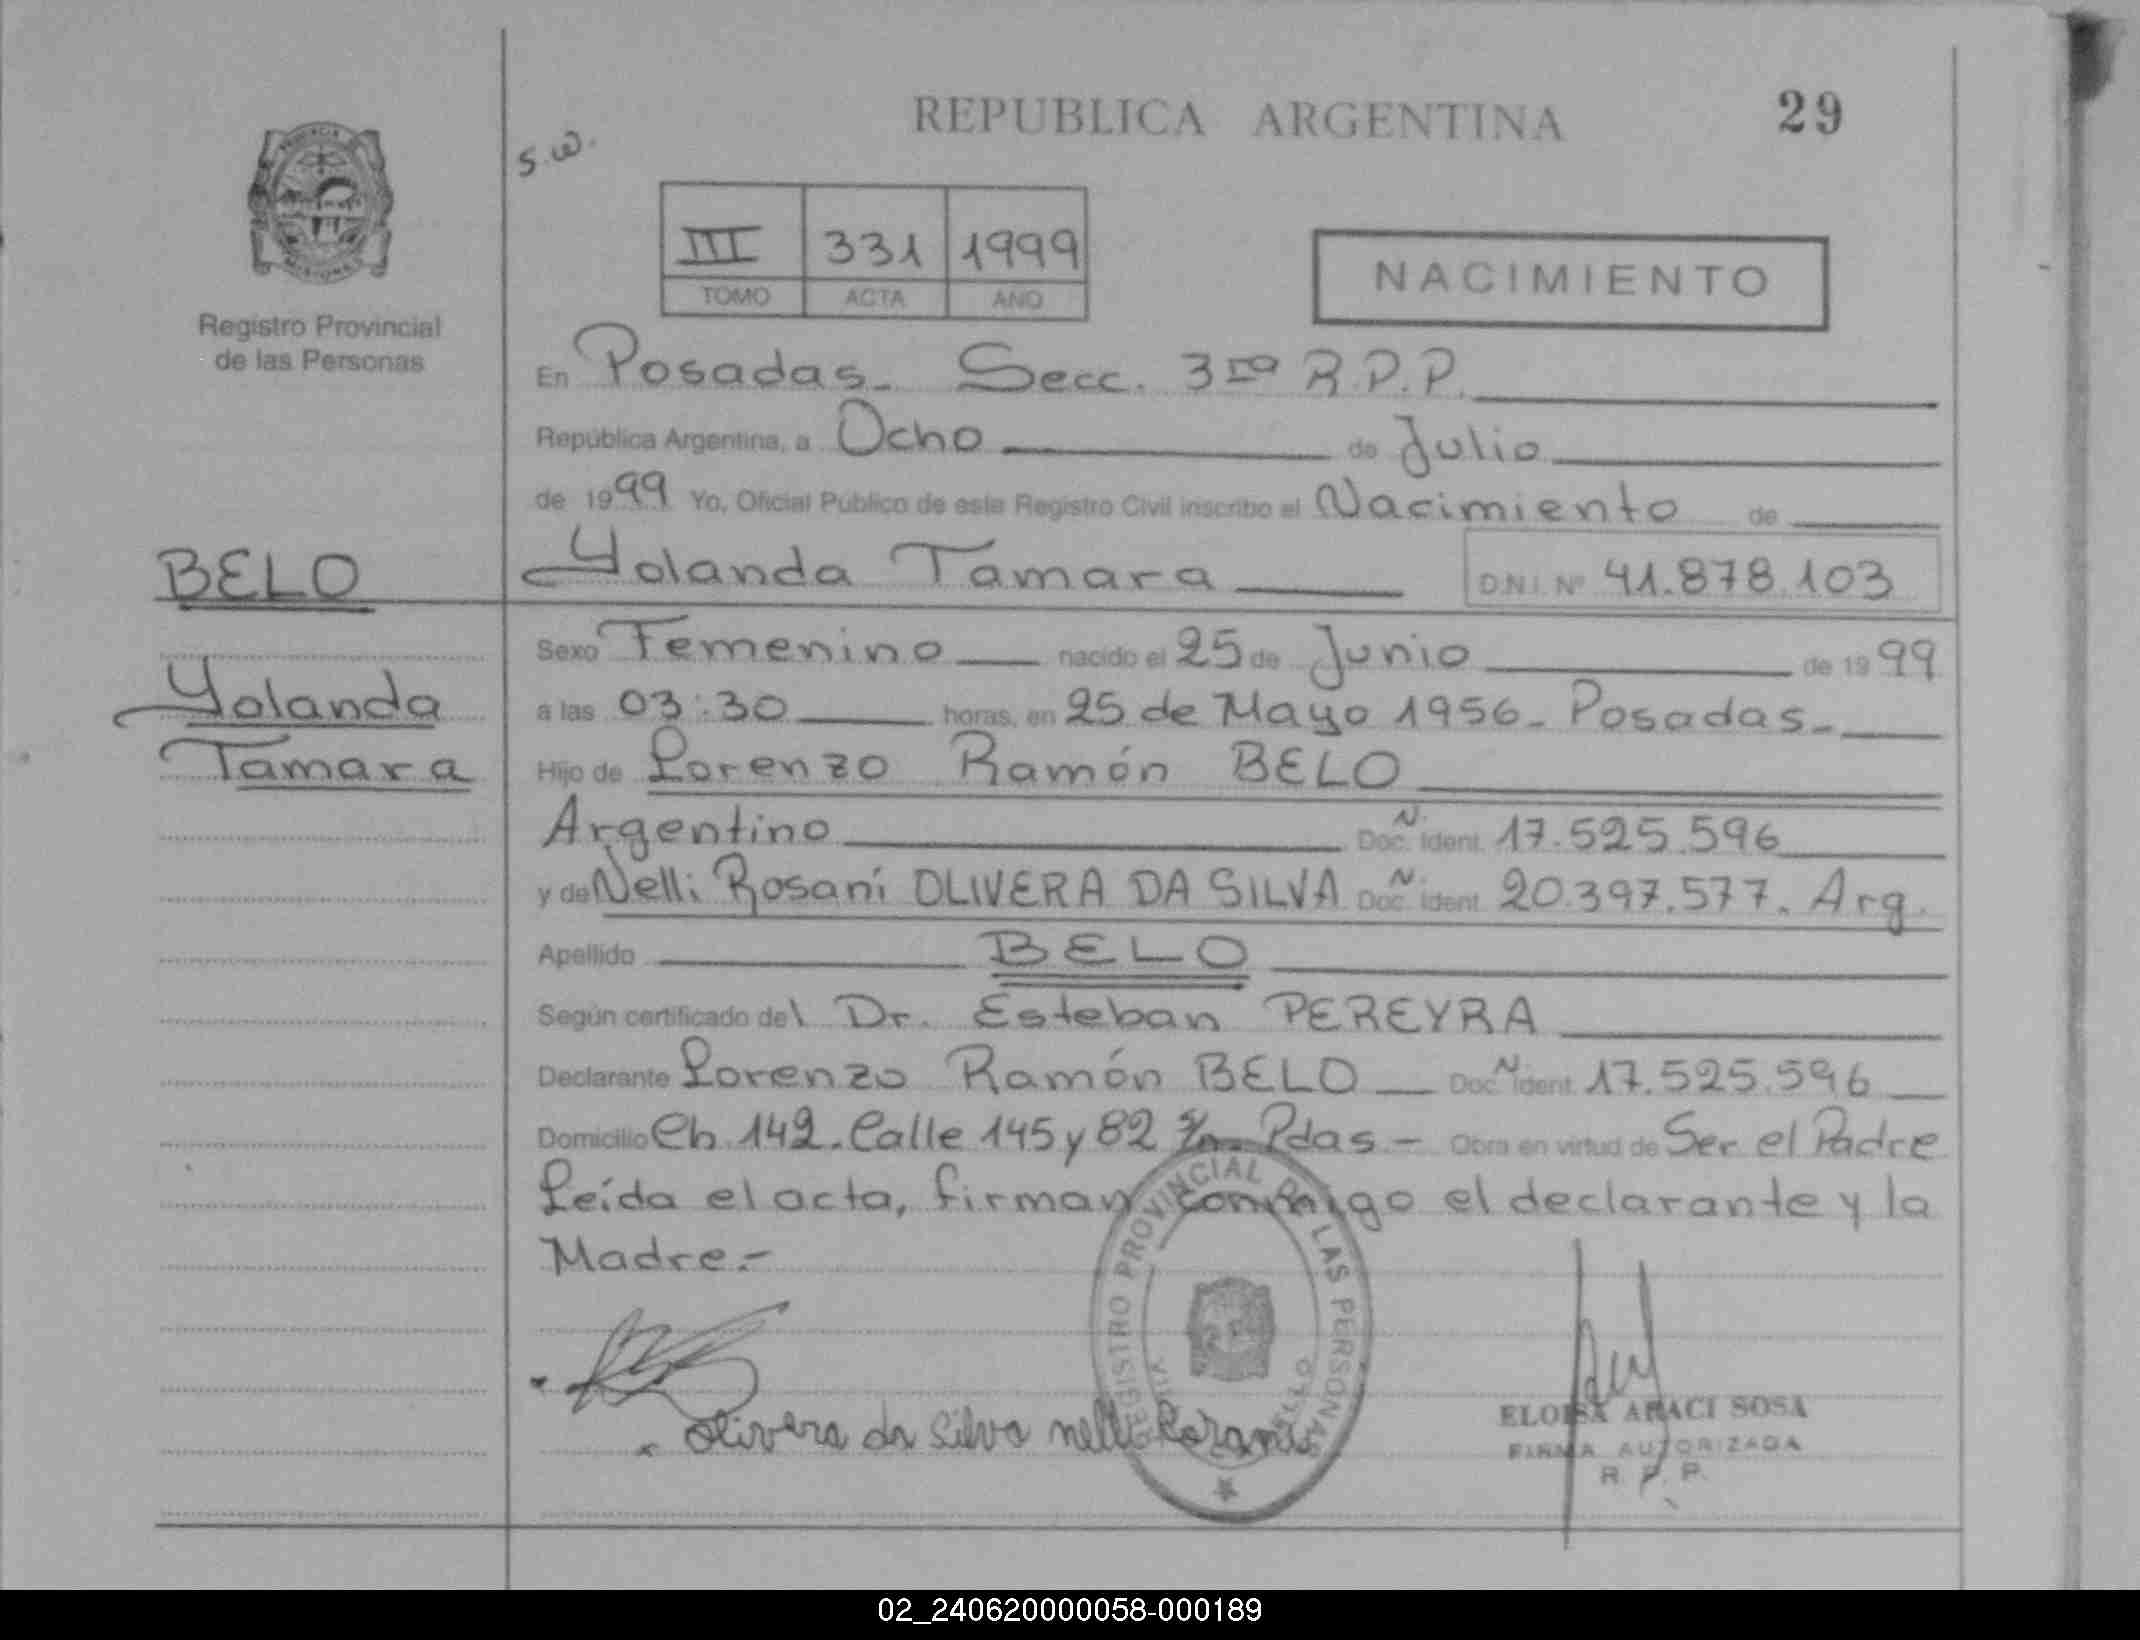 REPUBLICA ARGENTINA 29
s.w.
III 331 1999
TOMO ACTA AÑO
NACIMIENTO
Registro Provincial
de las Personas
En Posadas - Secc. 3ra R.P.P.
República Argentina, a Ocho de Julio
de 1999 Yo, Oficial Público de este Registro Civil inscribo el Nacimiento de
BELO
Yolanda Tamara D.N.I. Nº 41.878.103
Yolanda
Tamara
Sexo Femenino nacido el 25 de Junio de 1999
a las 03:30 horas, en 25 de Mayo 1956 - Posadas -
Hijo de Lorenzo Ramón BELO
Argentino Doc. N. Ident. 17.525.596
y de Nelli Rosani OLIVERA DA SILVA Doc. N. Ident. 20.397.577. Arg.
Apellido BELO
Según certificado del Dr. Esteban PEREYRA
Declarante Lorenzo Ramón BELO Doc. N. Ident. 17.525.596
Domicilio Ch. 142. Calle 145 y 82 s/n - Pdas. - Obra en virtud de Ser el Padre
Leída el acta, firman conmigo el declarante y la
Madre.-
REGISTRO PROVINCIAL DE LAS PERSONAS
Olivera da Silva nelli Rosani
ELOISA ARACI SOSA
FIRMA AUTORIZADA
R. P. P.
02_240620000058-000189